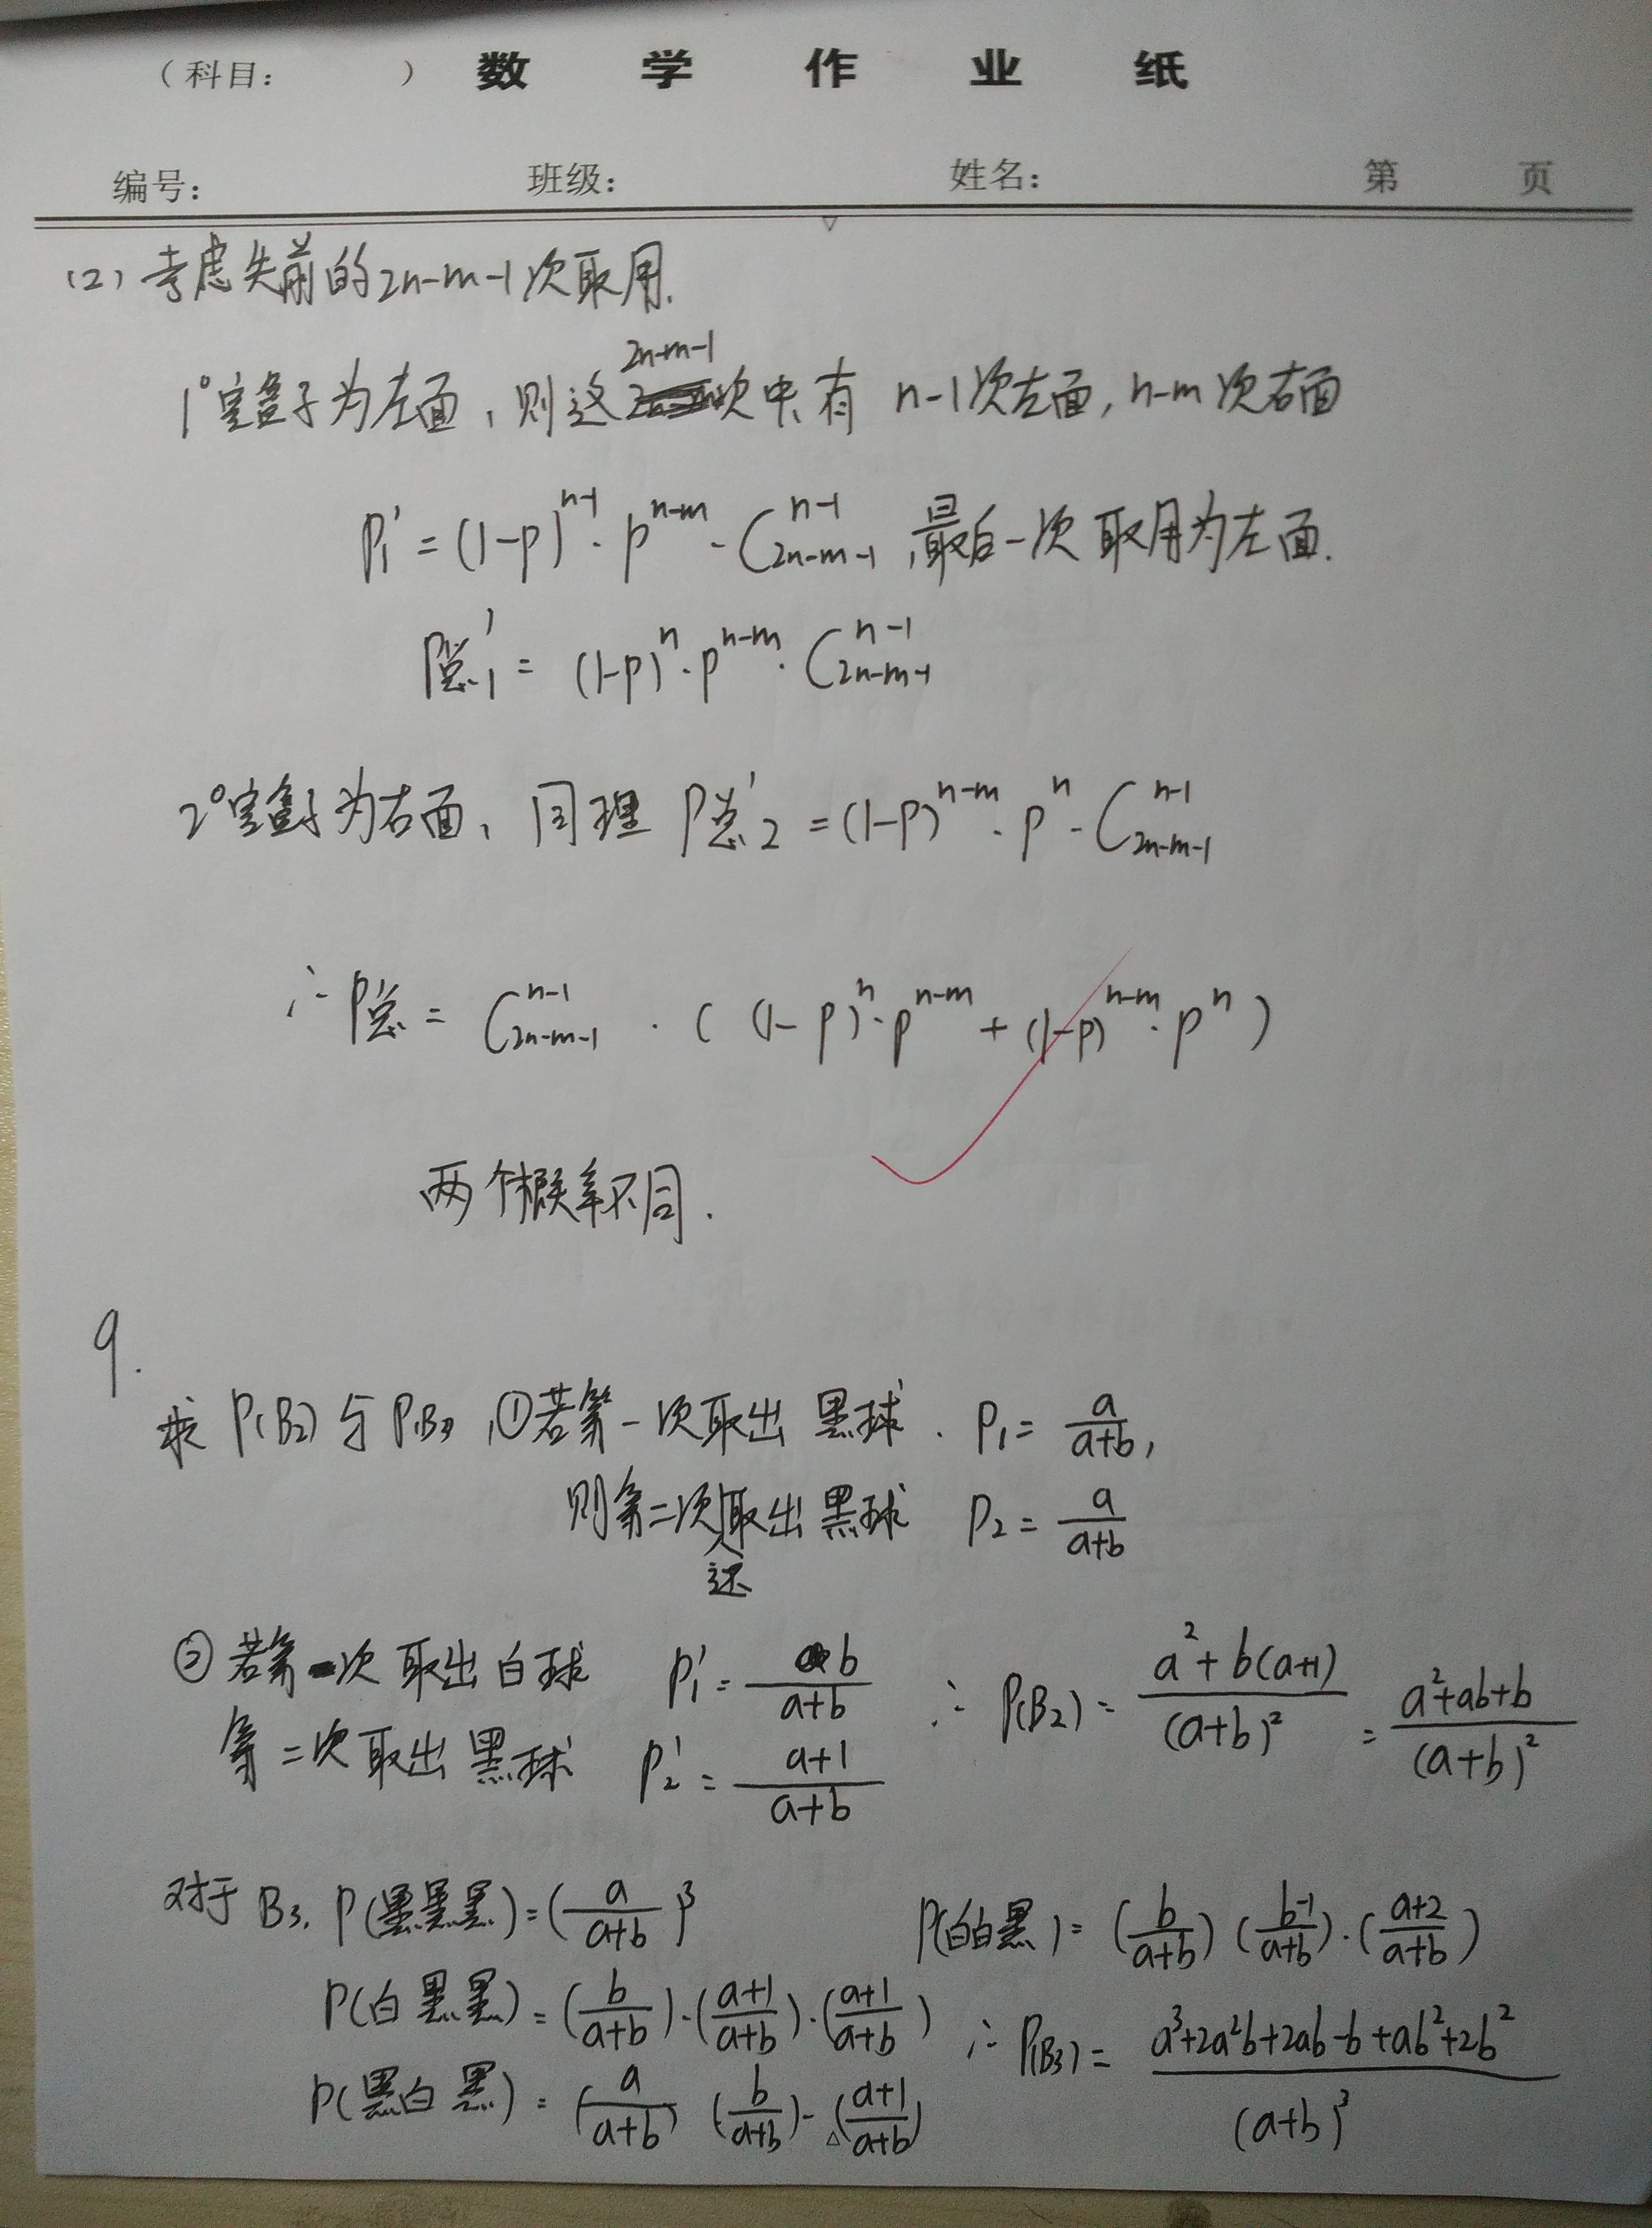 （科目：　　　） 数 学 作 业 纸
编号： 班级： 姓名： 第 页
(2) 考虑先前的2n-m-1次取用.
1° 空盒子为左面，则这2n-m-1次中，有 n-1次左面，n-m次右面
P₁' = (1-p)^{n-1}·p^{n-m}·C_{2n-m-1}^{n-1}，最后一次取用为左面.
P总₁' = (1-p)^{n}·p^{n-m}·C_{2n-m-1}^{n-1}
2° 空盒子为右面，同理 P总₂' = (1-p)^{n-m}·p^{n}·C_{2n-m-1}^{n-1}
∴ P总 = C_{2n-m-1}^{n-1}·((1-p)^{n}·p^{n-m} + (1-p)^{n-m}·p^{n})
两个概率不同.
9.
求 P(B₂) 与 P(B₃)，①若第一次取出黑球. P₁ = a/(a+b),
则第二次还取出黑球 P₂ = a/(a+b)
②若第一次取出白球 P₁' = b/(a+b)
第二次取出黑球 P₂' = (a+1)/(a+b)
∴ P(B₂) = (a²+b(a+1))/(a+b)² = (a²+ab+b)/(a+b)²
对于B₃, P(黑黑黑) = (a/(a+b))³
P(白黑黑) = (b/(a+b))·((a+1)/(a+b))·((a+1)/(a+b))
P(黑白黑) = (a/(a+b)) (b/(a+b))·((a+1)/(a+b))
P(白白黑) = (b/(a+b)) ((b-1)/(a+b))·((a+2)/(a+b))
∴ P(B₃) = (a³+2a²b+2ab-b+ab²+2b²)/(a+b)³